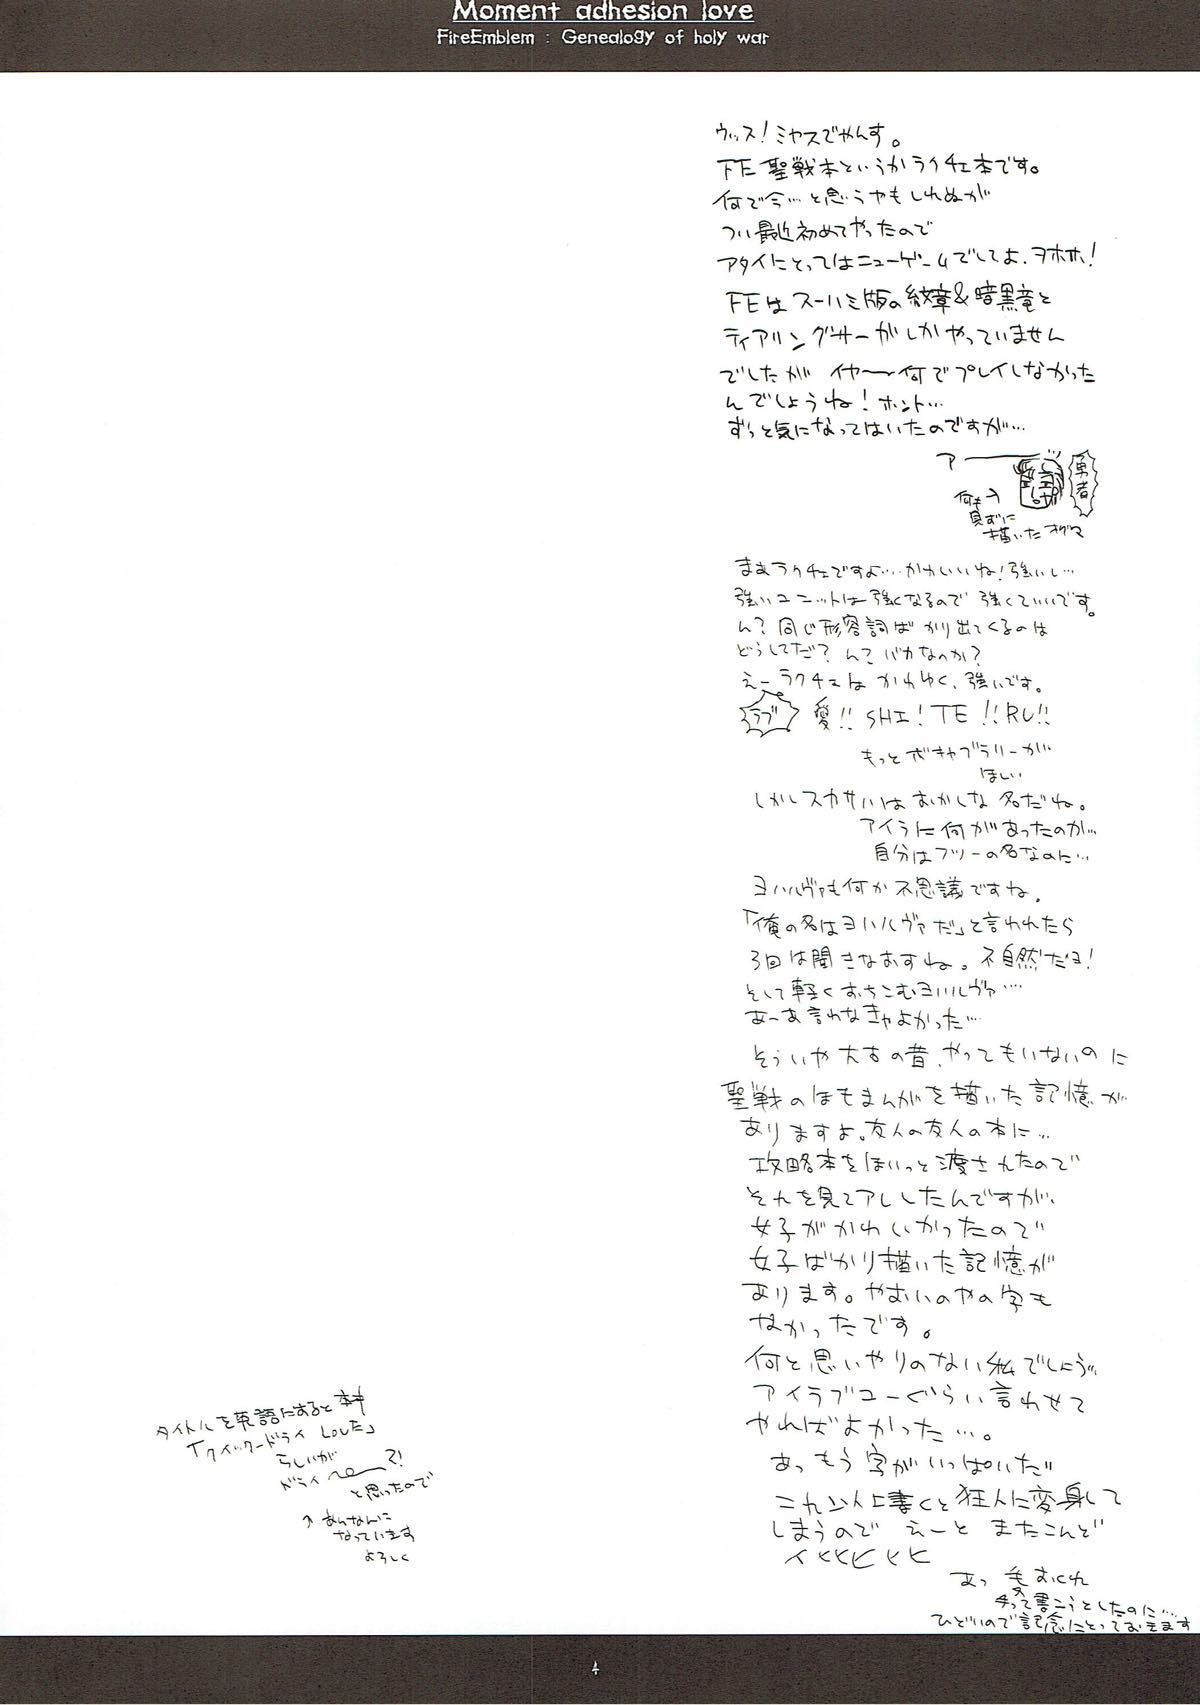 Moment adhesion love
FireEmblem : Genealogy of holy war
ウィッス!ミヤスでやんす。
FE聖戦本というかラクチェ本です。
何で今…と思うやもしれぬが
つい最近初めてやったので
アタイにとってはニューゲームでしてよ、ヲホホ!
FEはスーハミ版の紋章&暗黒竜と
ティアリングサーガしかやっていません
でしたが イヤ〜何でプレイしなかった
んでしょうね!ホント…
ずっと気になってはいたのですが…
アー
勇者
何も
見ずに
描いたオグマ
まぁラクチェですよ…かわいいね!強いし…
強いユニットは強くなるので強くていいです。
ん?同じ形容詞ばかり出てくるのは
どうしてだ?んで バカなのか?
えーラクチェはかわゆく、強いです。
ラブ 愛!!SHI!TE!!RU!!
もっとボキャブラリーが
ほしい
しかしスカサハはおかしな名だね。
アイラに何があったのか…
自分はフツーの名なのに…
ヨハルヴァも何か不思議ですね。
「俺の名はヨハルヴァだ」と言われたら
3回は聞きなおすね。不自然だヨ!
そして軽くおちこむヨハルヴァ…
あーあ言わなきゃよかった…
そういや大古の昔、やってもいないのに
聖戦のほもまんがを描いた記憶が
ありますよ。友人の友人の本に…
攻略本をほいっと渡されたので
それを見てアレしたんですが、
女子がかわいかったので
女子ばかり描いた記憶が
あります。やおいのやの字も
なかったです。
何と思いやりのない私でしょう…
アイラブユーぐらい言わせて
やればよかった…。
あっもう字がいっぱいだ
これ以上書くと狂人に変身して
しまうので えーと またこんど
イヒヒヒヒヒ
あっ
って書こうとしたのに…
ひどいので記念にとっておきます
タイトルを英語にすると本来
「クイックードライ Loveだ」
らしいが
ドライ〜?!
と思ったので
↑あんなんに
なっています
よろしく
4